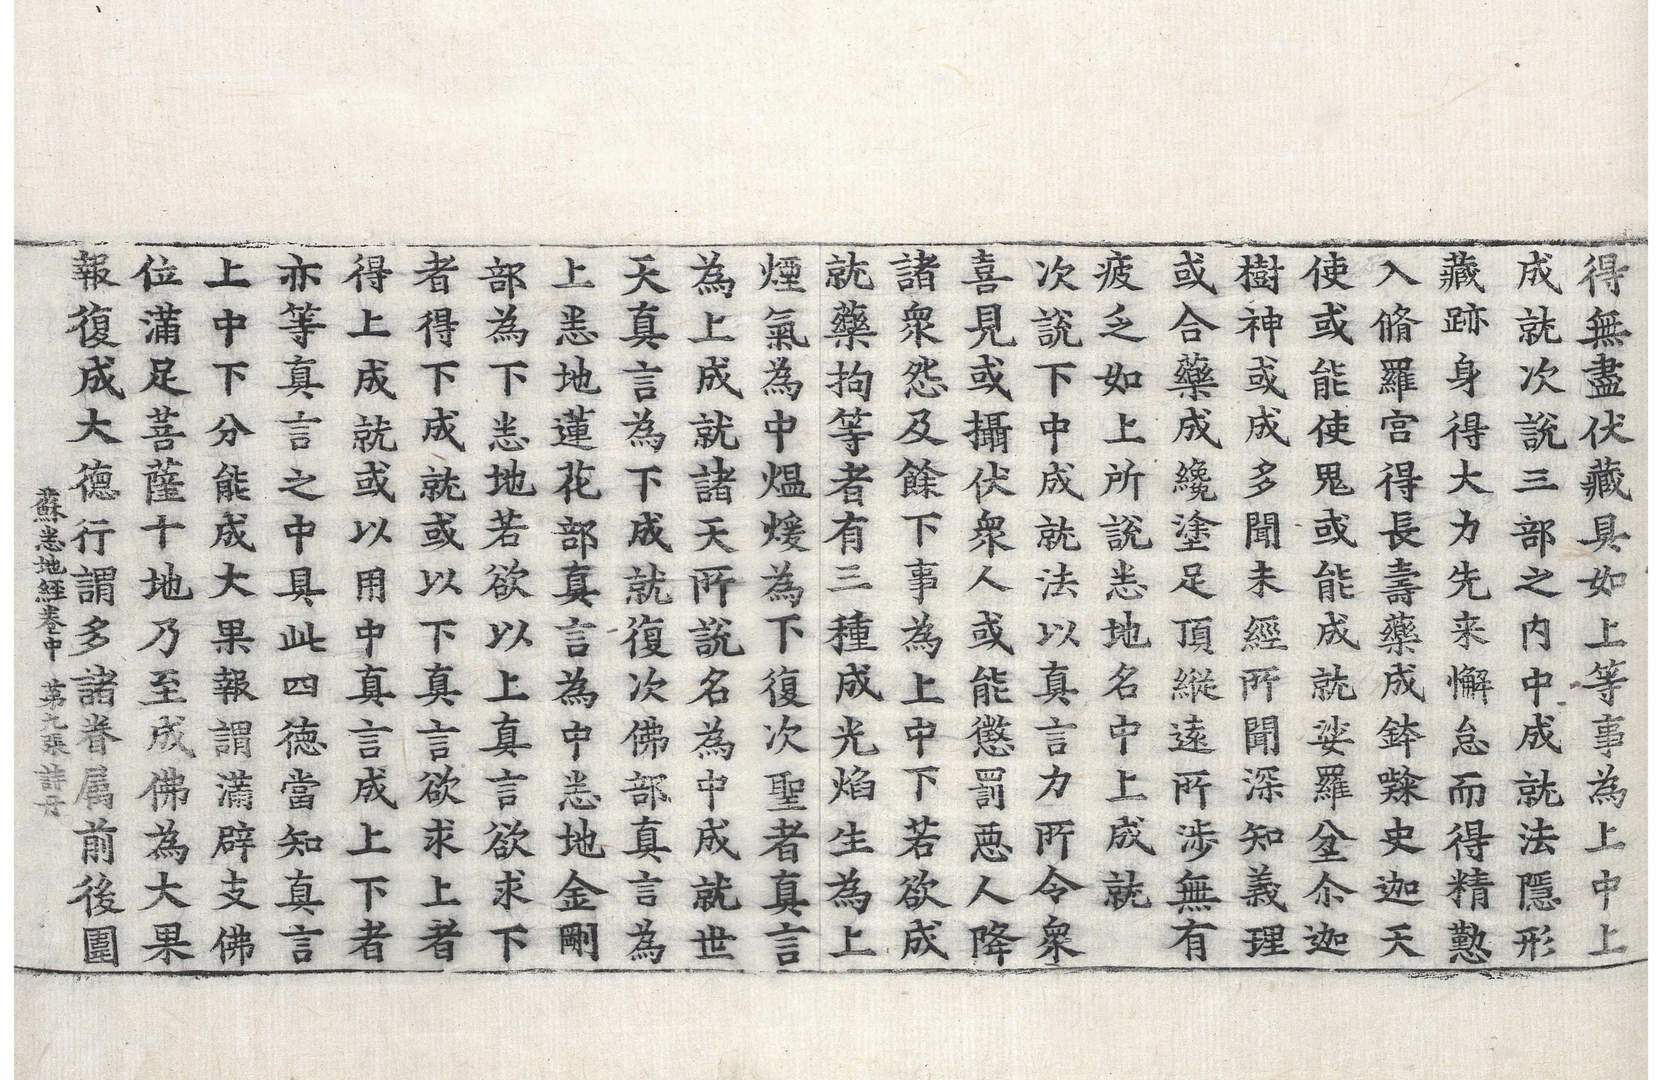 得無盡伏藏具如上等事為上中上
成就次說三部之內中成就法隱形
藏跡身得大力先來懈怠而得精懃
入脩羅宮得長壽藥成鉢㘑史迦天
使或能使鬼或能成就娑羅坌尒迦
樹神或成多聞未經所聞深知義理
或合藥成纔塗足頂縱遠所涉無有
疲乏如上所說悉地名中上成就
次說下中成就法以真言力所令衆
喜見或攝伏衆人或能懲罰惡人降
諸衆怨及餘下事為上中下若欲成
就藥拘等者有三種成光焰生為上
煙氣為中熅煖為下復次聖者真言
為上成就諸天所說名為中成就世
天真言為下成就復次佛部真言為
上悉地蓮花部真言為中悉地金剛
部為下悉地若欲以上真言欲求下
者得下成就或以下真言欲求上者
得上成就或以用中真言成上下者
亦等真言之中具此四德當知真言
上中下分能成大果報謂滿辟支佛
位滿足菩薩十地乃至成佛為大果
報復成大德行謂多諸眷属前後圍
蘇悉地經卷中 第九張 詩